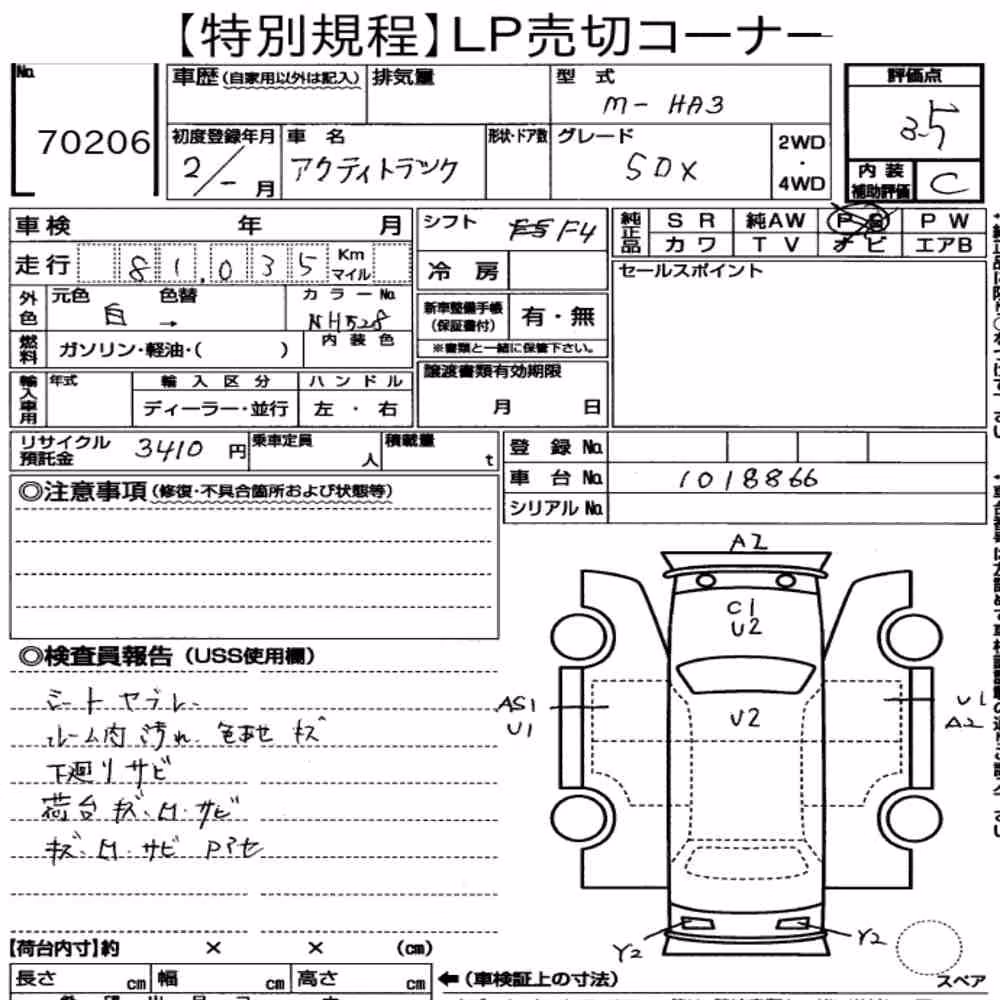 【特別規程】LP売切コーナー
No. 70206
車歴(自家用以外は記入) 排気量 型式 M- HA3
評価点 3.5
初度登録年月 2/- 月 車名 アクティトラック 形状・ドア数 グレード SDX 2WD・4WD
内装補助評価 C
車検 年 月 シフト F5 F4 純正品 SR 純AW PS PW
カワ TV ナビ エアB
走行 81,035 Km マイル 冷房
セールスポイント
外色 元色 白 → 色替 カラーNo. NH528
新車整備手帳(保証書付) 有・無
※書類と一緒に保管下さい。
燃料 ガソリン・軽油・( ) 内装色
輸入車用 年式 輸入区分 ハンドル
ディーラー・並行 左・右
譲渡書類有効期限
月 日
リサイクル預託金 3410円 乗車定員 人 積載量 t
登録No.
車台No. 1018866
シリアルNo.
◎注意事項(修復・不具合箇所および状態等)
◎検査員報告(USS使用欄)
シートヤブレ
ルーム内汚れ、色あせ キズ
下廻りサビ
荷台キズ、凹・サビ
キズ、凹・サビ Pアセ
A2
C1
U2
U2
AS1
U1
U1
A2
Y2
Y2
スペア
【荷台内寸】約 × × (cm)
長さ cm 幅 cm 高さ cm
←(車検証上の寸法)